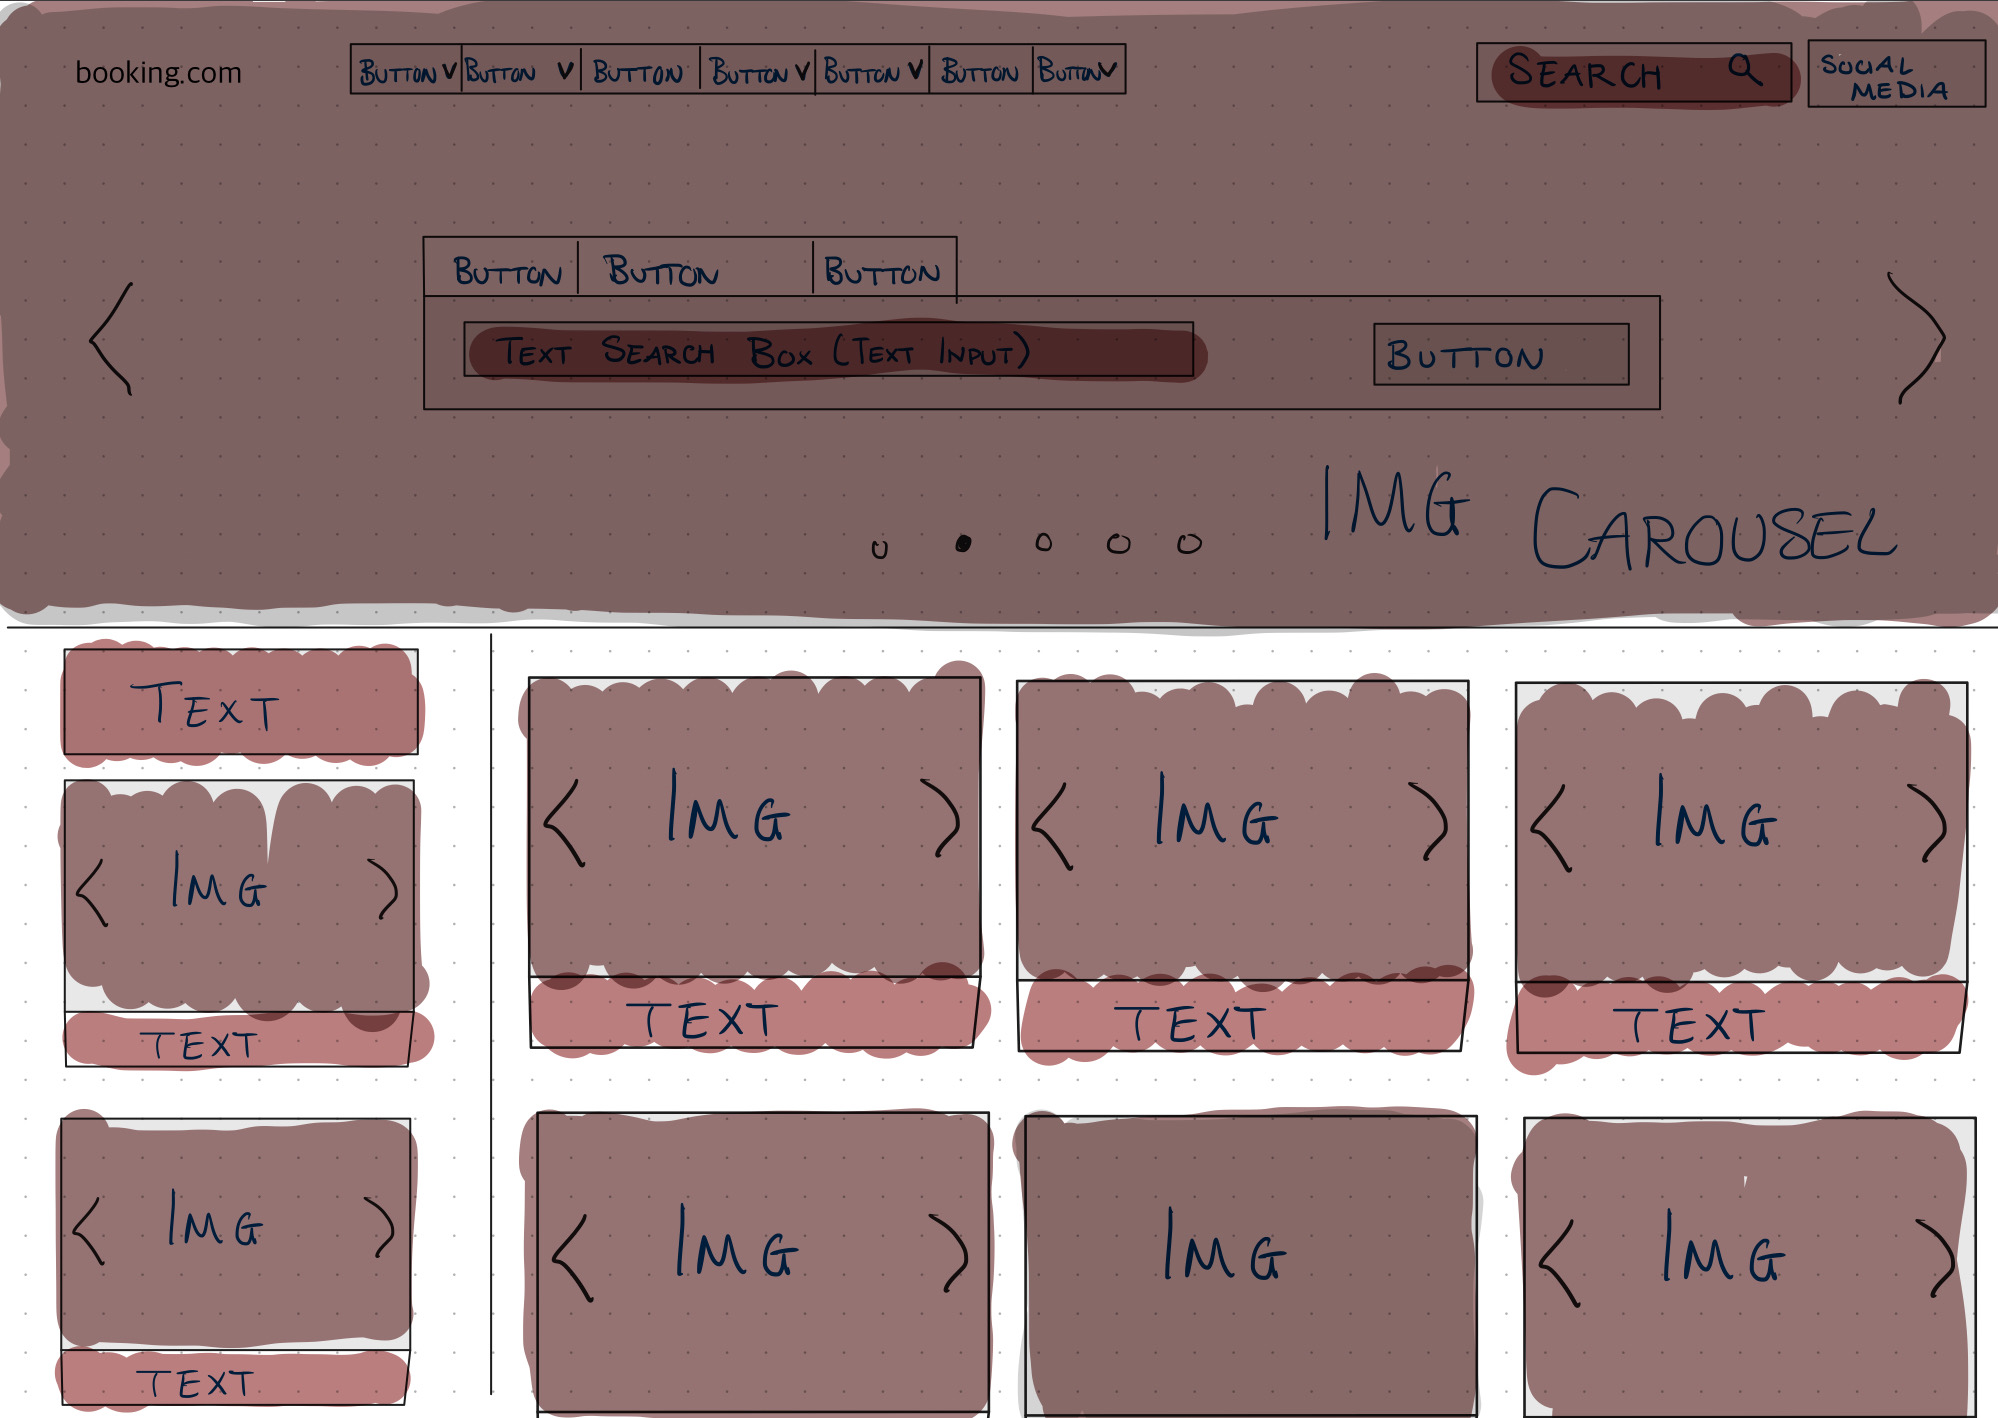 booking.com
BUTTON BUTTON BUTTON BUTTON BUTTON BUTTON BUTTON
SEARCH
SOCIAL
MEDIA
BUTTON BUTTON BUTTON
TEXT SEARCH BOX (TEXT INPUT)
BUTTON
IMG CAROUSEL
TEXT
IMG
TEXT
IMG
TEXT
IMG IMG IMG
TEXT TEXT TEXT
IMG IMG IMG